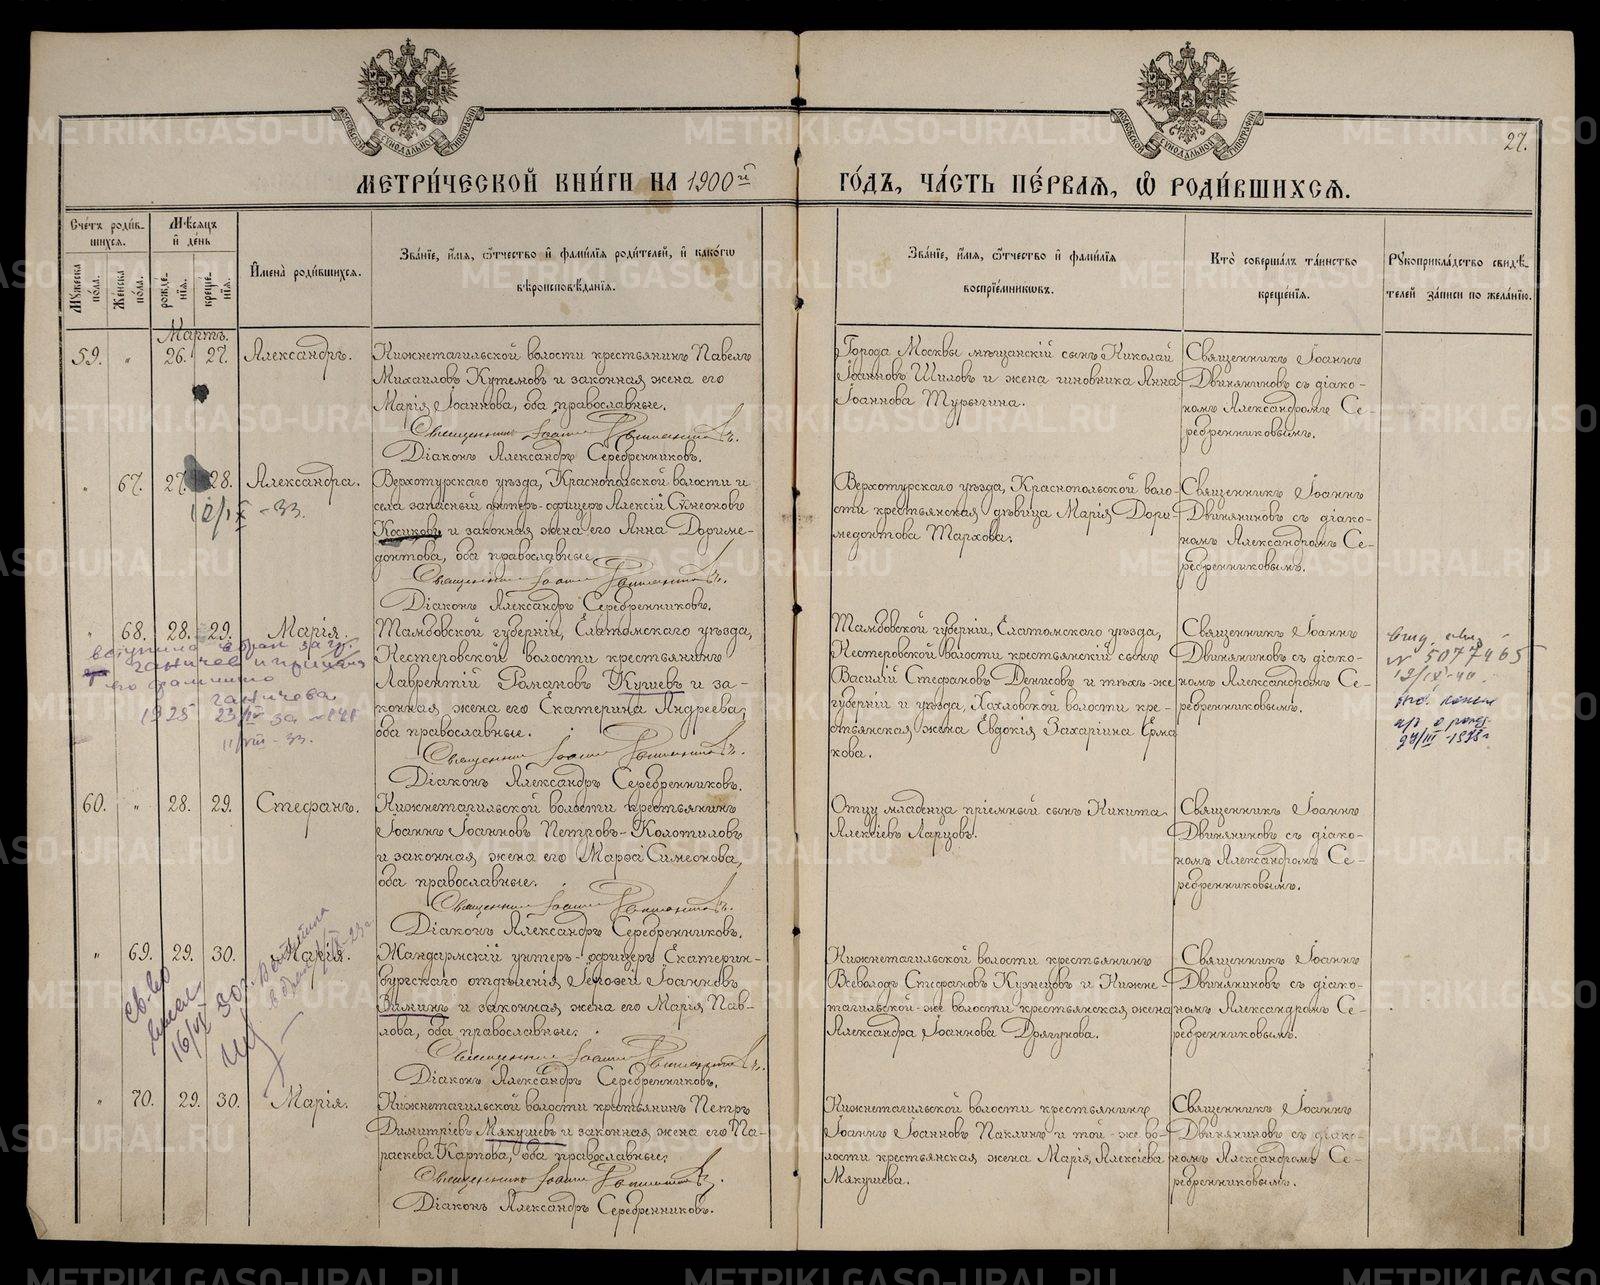 27.
МЕТРИ́ЧЕСКОЙ КНИ́ГИ НА 1900й ГО́ДЪ, ЧА́СТЬ ПЕ́РВАЯ, Ѡ РОДИ́ВШИХСЯ.
Сче́тъ роди́в-
шихся.
Мꙋжеска по́ла.
Женска по́ла.
Мѣсяцъ
и де́нь
рожде́-
нїя.
креще́-
нїя.
И҆мена̀ роди́вшихся.
Зва́нїе, и҆́мя, ѻ҆́тчество и҆ фами́лїя роди́телей, и҆ како́гѡ
вѣроисповѣ́данїя.
Зва́нїе, и҆́мя, ѻ҆́тчество и҆ фами́лїя
воспрїе́мникѡвъ.
Кто̀ соверша́лъ та́инство
креще́нїя.
Рꙋкоприкла́дство свидѣ́-
телей за́писи по жела́нїю.
Мартъ.
59. " 26. 27. Александръ.
Нижнетагильской волости крестьянинъ Павелъ
Михаиловъ Кутемовъ и законная жена его
Марія Іоаннова, оба православные.
Священникъ Іоаннъ
Діаконъ Александръ Серебренниковъ.
Города Москвы мѣщанскій сынъ Николай
Іоанновъ Шиловъ и жена чиновника Анна
Іоаннова Турыгина.
Священникъ Іоаннъ
Двиняниновъ съ діако-
номъ Александромъ Се-
ребренниковымъ.
" 67. 27. 28. Александра.
12/IX - 33.
Верхотурскаго уѣзда, Краснопольской волости и
села запасный унтеръ-офицеръ Алексій Сѵмеоновъ
Косиковъ и законная жена его Анна Дориме-
донтова, оба православные.
Священникъ Іоаннъ
Діаконъ Александръ Серебренниковъ.
Верхотурскаго уѣзда, Краснопольской воло-
сти крестьянская дѣвица Марія Дори-
медонтова Тархова.
Священникъ Іоаннъ
Двиняниновъ съ діако-
номъ Александромъ Се-
ребренниковымъ.
" 68. 28. 29. Марія.
вступила в брак за гр.
его фамилию
Ганичева
1925 23/IV за №
11/VIII - 33.
Тамбовской губерніи, Елатомскаго уѣзда,
Нестеровской волости крестьянинъ
Лаврентій Романовъ Кушевъ и за-
конная жена его Екатерина Андреева,
оба православные.
Священникъ Іоаннъ
Діаконъ Александръ Серебренниковъ.
Тамбовской губерніи, Елатомскаго уѣзда,
Нестеровской волости крестьянскій сынъ
Василій Стефановъ Денисовъ и тѣхъ-же
губерніи и уѣзда, Хохловской волости кре-
стьянская жена Евдокія Захаріина Ерма
кова.
Священникъ Іоаннъ
Двиняниновъ съ діако-
номъ Александромъ Се-
ребренниковымъ.
N 5077465
12/IX-40.
60. " 28. 29. Стефанъ.
Нижнетагильской волости крестьянинъ
Іоаннъ Іоанновъ Петровъ-Колотиловъ
и законная жена его Марѳа Симеонова,
оба православные.
Священникъ Іоаннъ
Діаконъ Александръ Серебренниковъ.
Отцу младенца пріемный сынъ Никита
Алексіевъ Ларцовъ.
Священникъ Іоаннъ
Двиняниновъ съ діако-
номъ Александромъ Се-
ребренниковымъ.
" 69. 29. 30. Марія.
Св-во
16/VI 30 г.
Вступила
в брак
Жандармскій унтеръ-офицеръ Екатерин-
бургскаго отдѣленія Іероѳей Іоанновъ
Зиминъ и законная жена его Марія Пав-
лова, оба православные.
Священникъ Іоаннъ
Діаконъ Александръ Серебренниковъ.
Нижнетагильской волости крестьянинъ
Всеволодъ Стефановъ Кузнецовъ и Нижне
тагильской-же волости крестьянская жена
Александра Іоаннова Драгунова.
Священникъ Іоаннъ
Двиняниновъ съ діако-
номъ Александромъ Се-
ребренниковымъ.
" 70. 29. 30. Марія.
Нижнетагильской волости крестьянинъ Петръ
Димитріевъ Мякушевъ и законная жена его Па-
раскева Карпова, оба православные.
Священникъ Іоаннъ
Діаконъ Александръ Серебренниковъ.
Нижнетагильской волости крестьянинъ
Іоаннъ Іоанновъ Паклинъ и той-же во-
лости крестьянская жена Марія Алексіева
Мякушева.
Священникъ Іоаннъ
Двиняниновъ съ діако-
номъ Александромъ Се-
ребренниковымъ.
METRIKI.GASO-URAL.RU